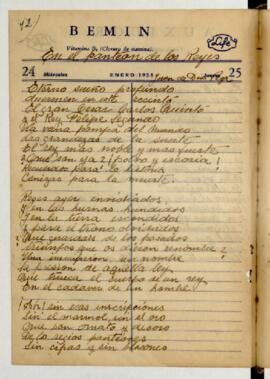 42)
BEMIN
Life
Vitamina B₁ (Cloruro de tiamina).
En el panteón de los Reyes
24 Miércoles ENERO 1951 Jueves 25
Eterno sueño profundo
duermen en este recinto
el gran César Carlos Quinto
y el Rey Felipe Segundo
La vana pompa del mundo
las grandezas de la suerte
El rey más noble y más fuerte
¿Qué son ya? ¡polvo y escoria!
Recuerdos para la historia
Cenizas para la muerte.
Reyes ayer
Y en las hundidos
en la tierra escondidos
y para el trono olvidados
Que queda de los pasados
triunfos que os dieron renombre?
Una inscripción, un nombre
La prisión de aquella ley
Que trueca el cuerpo de un rey
En el cadáver de un hombre!
¡Ah! sin esas inscripciones
Sin el mármol, sin el oro
Que son ornato y decoro
De lo regios panteones
Sin cifras y sin blasones